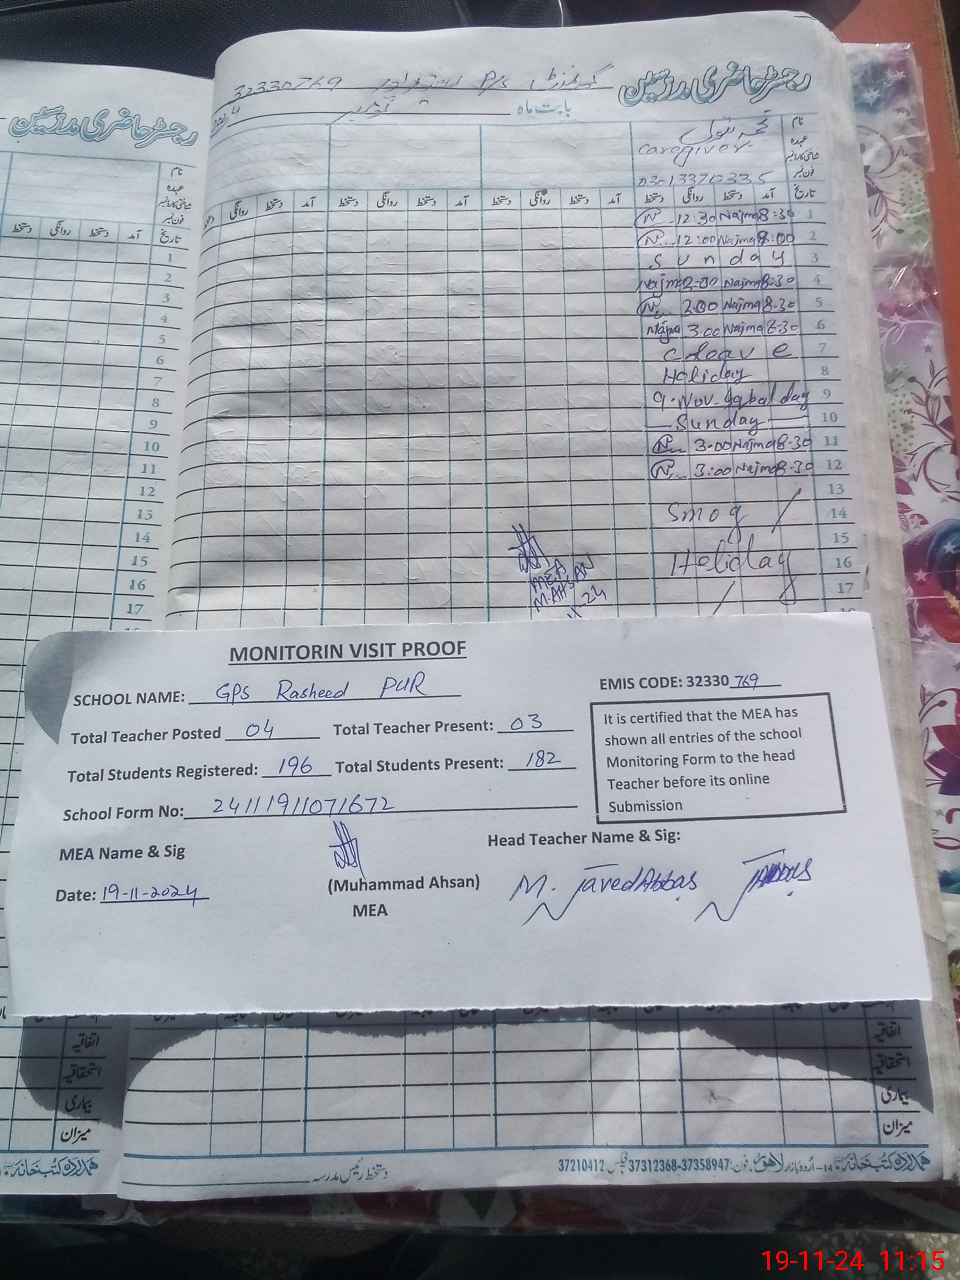 رجسٹر حاضری مدرسین
32330769
بابت ماہ
رجسٹر حاضری مدرسین
نام
عہدہ
caregiver
تاریخ
آمد
دستخط
روانگی
دستخط
1 N 12:30 Najma 8:30
2 N 12:00 Najma 8:00
3 Sunday
4 Najma 2:00 Najma 8:30
5 N 2:00 Najma 8:30
6 Najma 3:00 Najma 8:30
7 C leave
8 Holiday
9 9. Nov. Iqbal day
10 Sunday
11 N 3:00 Najma 8:30
12 N 3:00 Najma 8:30
13
14 Smog
15
16 Holiday
17
MEA
M. AHSAN
11-24
MONITORIN VISIT PROOF
SCHOOL NAME: GPS Rasheed PUR
EMIS CODE: 32330 769
Total Teacher Posted 04 Total Teacher Present: 03
Total Students Registered: 196 Total Students Present: 182
School Form No: 24111911071672
It is certified that the MEA has
shown all entries of the school
Monitoring Form to the head
Teacher before its online
Submission
MEA Name & Sig
Head Teacher Name & Sig:
Date: 19-11-2024
(Muhammad Ahsan)
MEA
M. Javed Abbas
اتفاقیہ
استحقاقیہ
بیماری
میزان
دستخط رئیس مدرسہ
ہمدرد کتب خانہ 14-اردو بازار لاہور فون: 37312368-37358947 فیکس 37210412
19-11-24 11:15